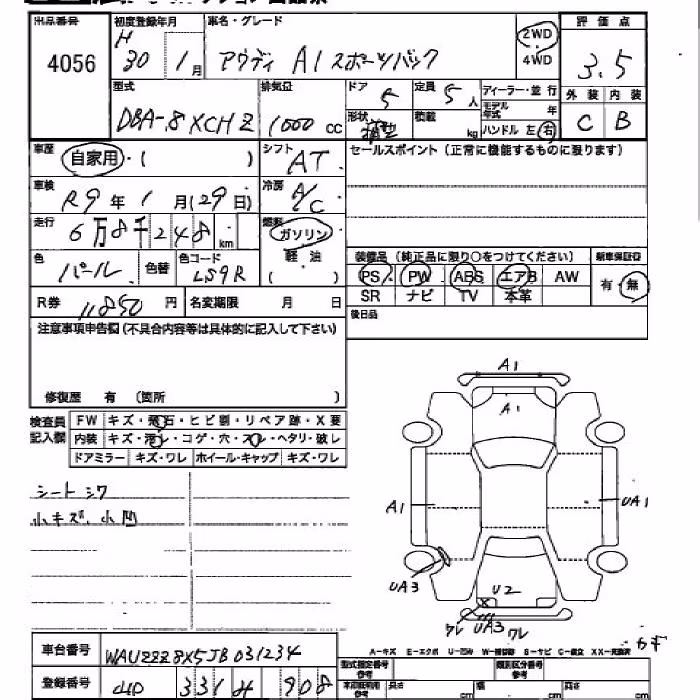 出品番号 初度登録年月 車名・グレード 評価点
4056 H30 1月 アウディ A1 スポーツバック 2WD 4WD 3.5
型式 排気量 ドア 5 定員 5人 ディーラー・並行 外装 内装
DBA-8XCHZ 1000cc 形状 箱型 積載 kg モデル年式 年 ハンドル 左 右 C B
車歴 自家用・( ) シフト AT セールスポイント(正常に機能するものに限ります)
車検 R9年1月(29日) 冷房 A/C
走行 6万8千248km 燃料 ガソリン
装備品(純正品に限り○をつけてください) 新車保証書
色 パール 色替 色コード LS9R 軽油 PS PW ABS エアB AW 有・無
R券 11850円 名変期限 月 日 SR ナビ TV 本革
後日品
注意事項申告欄(不具合内容等は具体的に記入して下さい)
修復歴 有 (箇所 )
検査員 FW キズ・飛石・ヒビ割・リペア跡・X要
記入欄 内装 キズ・汚レ・コゲ・穴・スレ・ヘタリ・破レ
ドアミラー キズ・ワレ ホイール・キャップ キズ・ワレ
シートシワ
小キズ、小凹
A1
A1
A1 UA1
UA3 U2
ワレ UA3 ワレ
カギ
車台番号 WAUZZZ8X5JB031234
A-キズ E-エクボ U-凹ミ W-補修跡 S-サビ C-腐食 XX-交換済
登録番号 331 908
型式指定番号 参考 類別区分番号 参考
長さ cm 幅 cm 高さ cm